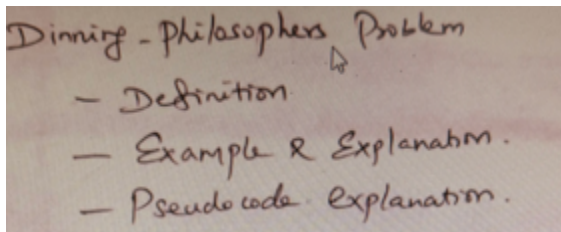 Dinning - Philosophers Problem
- Definition.
- Example & Explanation.
- Pseudocode explanation.